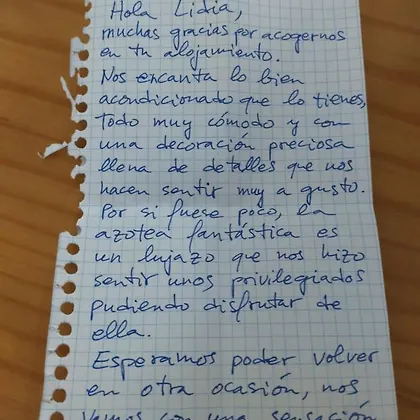 Hola Lidia,
muchas gracias por acogernos
en tu alojamiento.
Nos encanta lo bien
acondicionado que lo tienes,
todo muy cómodo y con
una decoración preciosa
llena de detalles que nos
hacen sentir muy a gusto.
Por si fuese poco, la
azotea fantástica es
un lujazo que nos hizo
sentir unos privilegiados
pudiendo disfrutar de
ella.
Esperamos poder volver
en otra ocasión, nos
vamos con una sensación